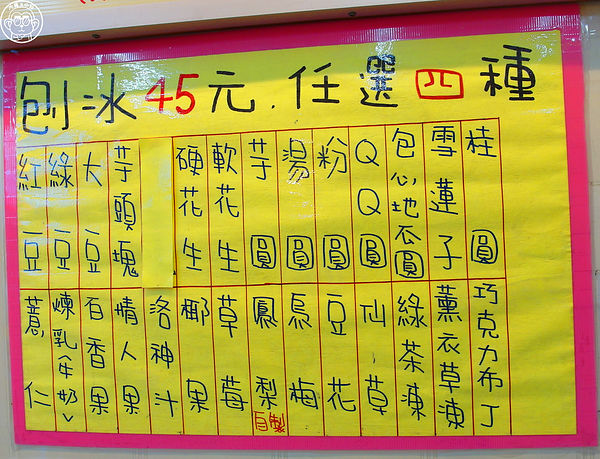 刨冰45元.任選四種
桂圓
雪蓮子
包心地瓜圓
QQ圓
粉圓
湯圓
芋圓
軟花生
硬花生
芋頭塊
大豆
綠豆
紅豆
巧克力布丁
薰衣草凍
綠茶凍
仙草
豆花
烏梅
鳳梨自製
草莓
椰果
洛神汁
情人果
百香果
煉乳(牛奶)
薏仁